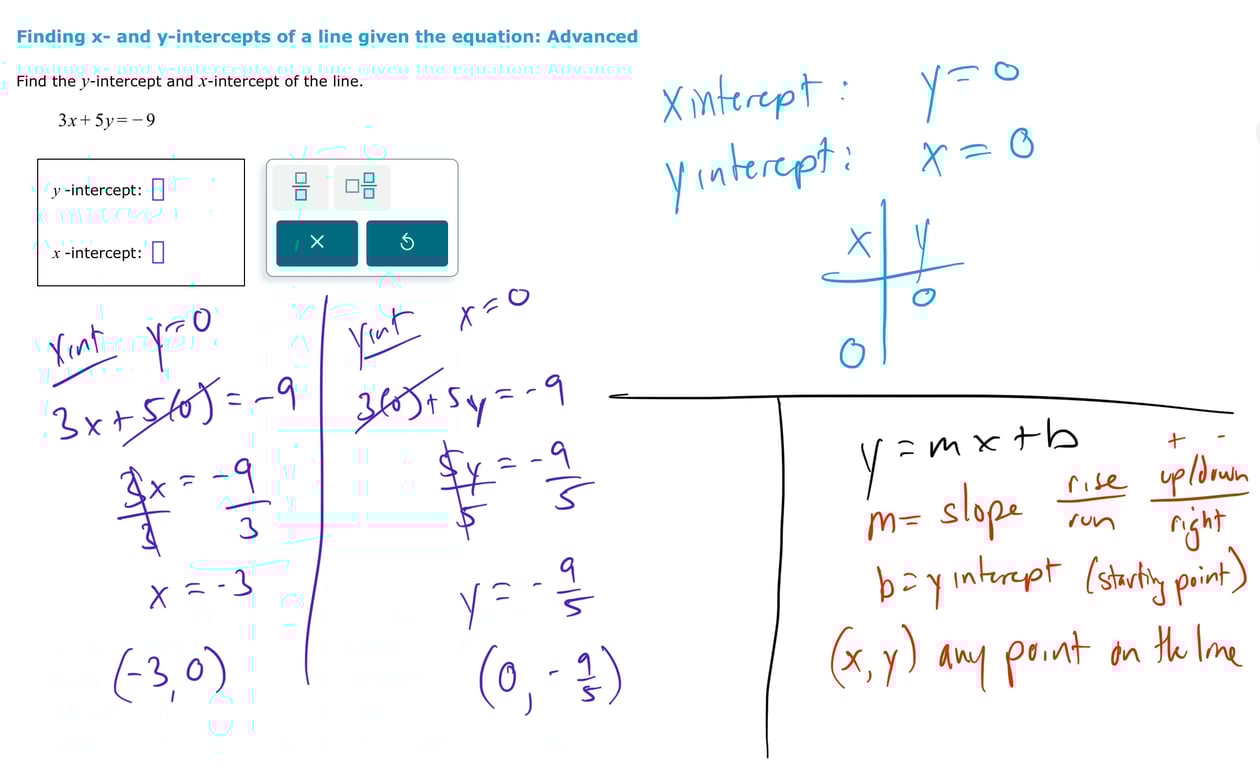 Finding x- and y-intercepts of a line given the equation: Advanced
Find the y-intercept and x-intercept of the line.
3x + 5y = −9
y -intercept:
x -intercept:
X intercept : y = 0
y intercept : x = 0
x y
0
0
Xint y=0
3x + 5(0) = -9
3x = -9
3 3
x = -3
(-3, 0)
Yint x=0
3(0) + 5y = -9
5y = -9
5 5
y = - 9/5
(0, - 9/5)
y = mx + b
m = slope rise/run + - up/down/right
b = y intercept (starting point)
(x, y) any point on the line